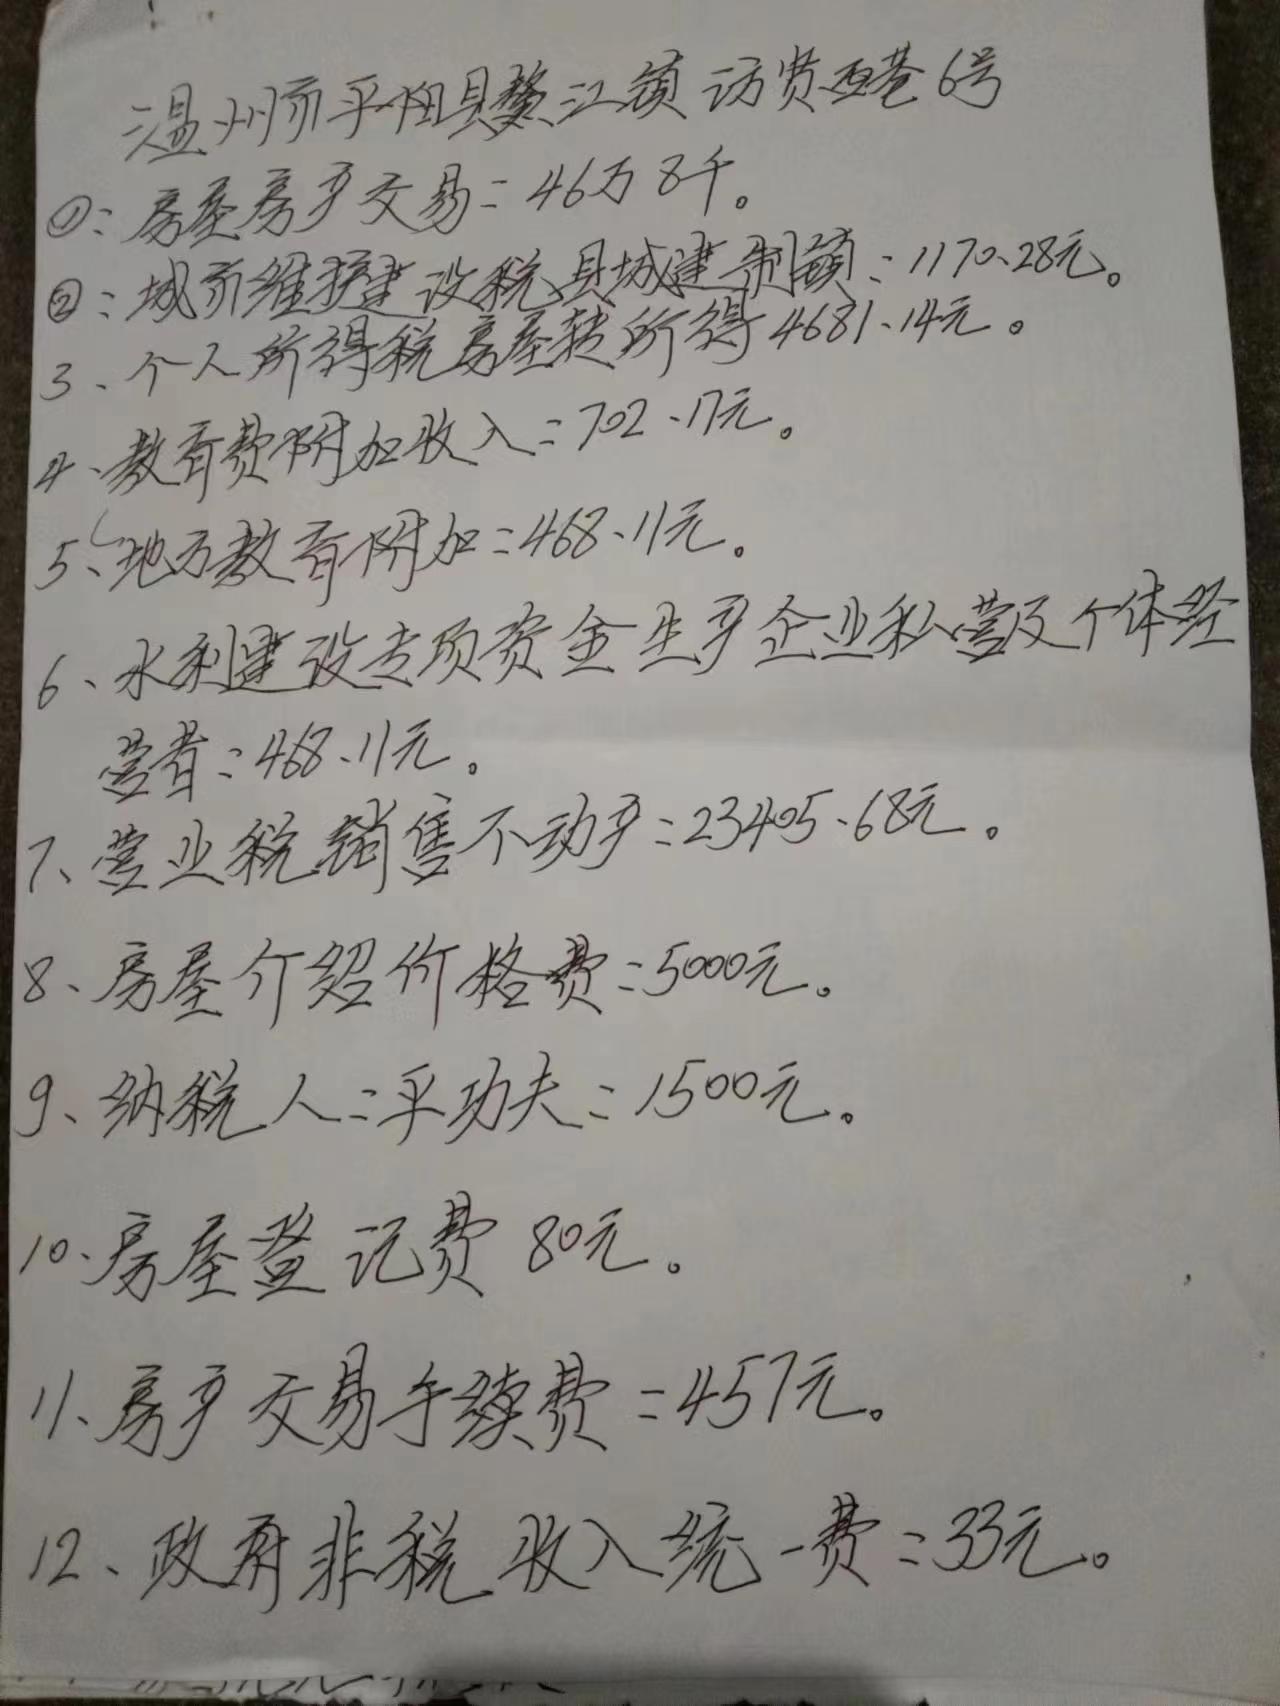 温州市平阳县鳌江镇访贤西巷6号
①:房屋房产交易:46万8千。
②:城市维护建设税县城建制镇:1170.28元。
3、个人所得税房屋转所得4681.14元。
4、教育费附加收入:702.17元。
5、地方教育附加:468.11元。
6、水利建设专项资金生产企业私营及个体经
营者:468.11元。
7、营业税销售不动产:23405.68元。
8、房屋介绍价格费:5000元。
9、纳税人:平功夫:1500元。
10、房屋登记费80元。
11、房产交易手续费:457元。
12、政府非税收入统一费:33元。